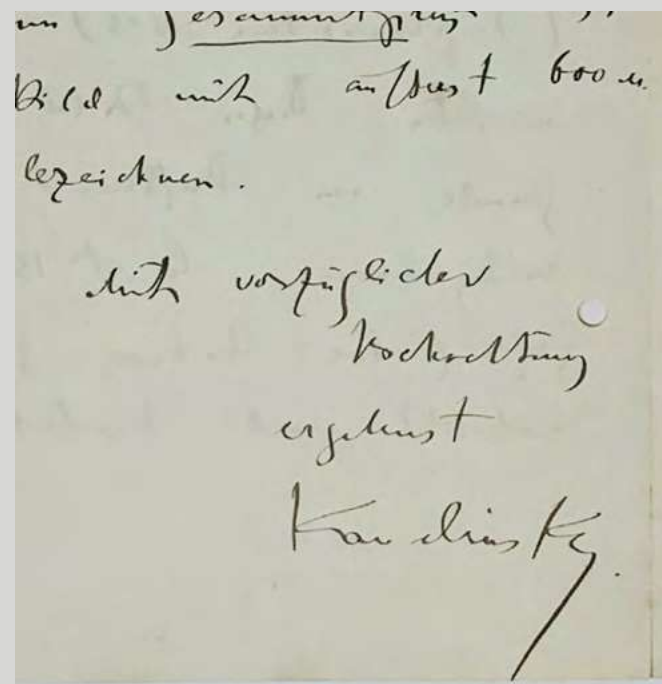 Bild mit äußerst 600 M.
bezeichnen.
Mit vorzüglicher
Hochachtung
ergebenst
Kandinsky.